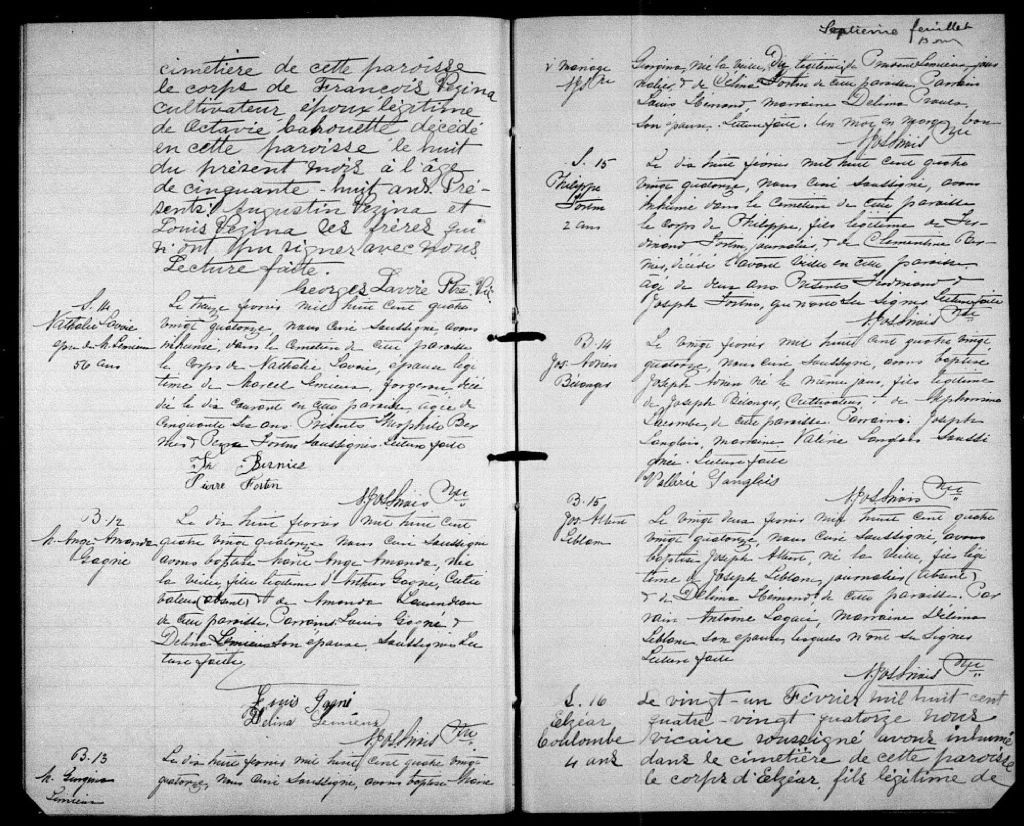 cimetière de cette paroisse
le corps de François Vézina
cultivateur, époux légitime
de Octavie Cahouette décédé
en cette paroisse le huit
du présent mois à l'âge
de cinquante-huit ans. Pré-
sents: Augustin Vezina et
Louis Vezina ses frères qui
n'ont pu signer avec nous.
Lecture faite.
Georges Lavoie Ptre. Vic
S. 14
Nathalie Lavoie
épse de M. Lemieux
56 ans
Le treize fevrier mil huit cent quatre
vingt quatorze, nous curé soussigné, avons
inhumé, dans le cimetière de cette paroisse
le corps de Nathalie Lavoie, épouse légi
time de Marcel Lemieux, forgeron décé
dé le dix courant en cette paroisse, agée de
cinquante six ans Présents Théophile Ber
nier & Pierre Fortin soussignés Lecture faite
Th Bernier
Pierre Fortin
Ptre
B. 12
M. Ange-Amanda
Gagné
Le dix huit fevrier mil huit cent
quatre vingt quatorze nous curé soussigné
avons baptisé Marie Ange Amanda, née
la veille, fille légitime d'Arthur Gagné, Culti
vateur (absent) & de Amanda
de cette paroisse, Parrain Louis Gagné &
Delina Lemieux son épouse, soussignés Lec
ture faite,
Louis Gagné
Delina Lemieux
Ptre
B. 13
M. Georgina
Lemieux
Le dix huit fevrier mil huit cent quatre vingt
quatorze, nous curé soussigné, avons baptisé Marie
Septième feuillet
1 mariage
Georgina, née la veille, fille légitime de Lemieux
& de Célina Fortin de cette paroisse. Parrain
Louis Hemond, marraine Délima
son épouse. Lecture faite. Un mot en marge bon
Ptre
S. 15
Philippe
Fortin
2 ans
Le dix huit février mil huit cent quatre
vingt quatorze, nous curé soussigné, avons
inhumé dans le cimetière de cette paroisse
le corps de Philippe, fils légitime de Fer
dinand Fortin journalier, & de Clementine Ber
nier, décédé l'avant veille en cette paroisse
âgé de deux ans Présents Ferdinand &
Joseph Fortin, qui n'ont su signer Lecture faite
Ptre
B. 14
Jos. Adrien
Belanger
Le vingt fevrier mil huit cent quatre vingt
quatorze, nous curé soussigné, avons baptisé
Joseph Adrien né le même jour, fils légitime
de Joseph Belanger, Cultivateur & de Sephronime
Lacombe, de cette paroisse. Parrain Joseph
Langlois, marraine Valérie Langlois soussi
gnée. Lecture faite
Vallérie Langlois
Ptre
B. 15
Jos. Albert
Leblanc
Le vingt deux fevrier mil huit cent quatre
vingt quatorze, nous curé soussigné, avons
baptisé Joseph Albert, né la veille, fils légi
time de Joseph Leblanc, journalier (absent)
& de Délima Hemond, de cette paroisse. Par
rain Antoine Lagacé, Marraine Délima
Leblanc son épouse, lesquels n'ont su signer
Lecture faite
Ptre
S. 16
Elzéar
Coulombe
4 ans
Le vingt-un Février mil huit cent
quatre-vingt quatorze nous
vicaire soussigné avons inhumé
dans le cimetière de cette paroisse
le corps d'Elzéar, fils légitime de